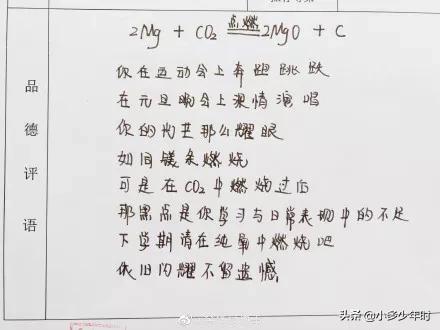 2Mg + CO₂ 点燃 2MgO + C
品德评语
你在运动会上奔跑跳跃
在元旦晚会上深情演唱
你的光芒那么耀眼
如同镁条燃烧
可是在CO₂中燃烧过后
那黑点是你学习与日常表现中的不足
下学期请在纯氧中燃烧吧
依旧闪耀不留遗憾
头条 @小多少年时